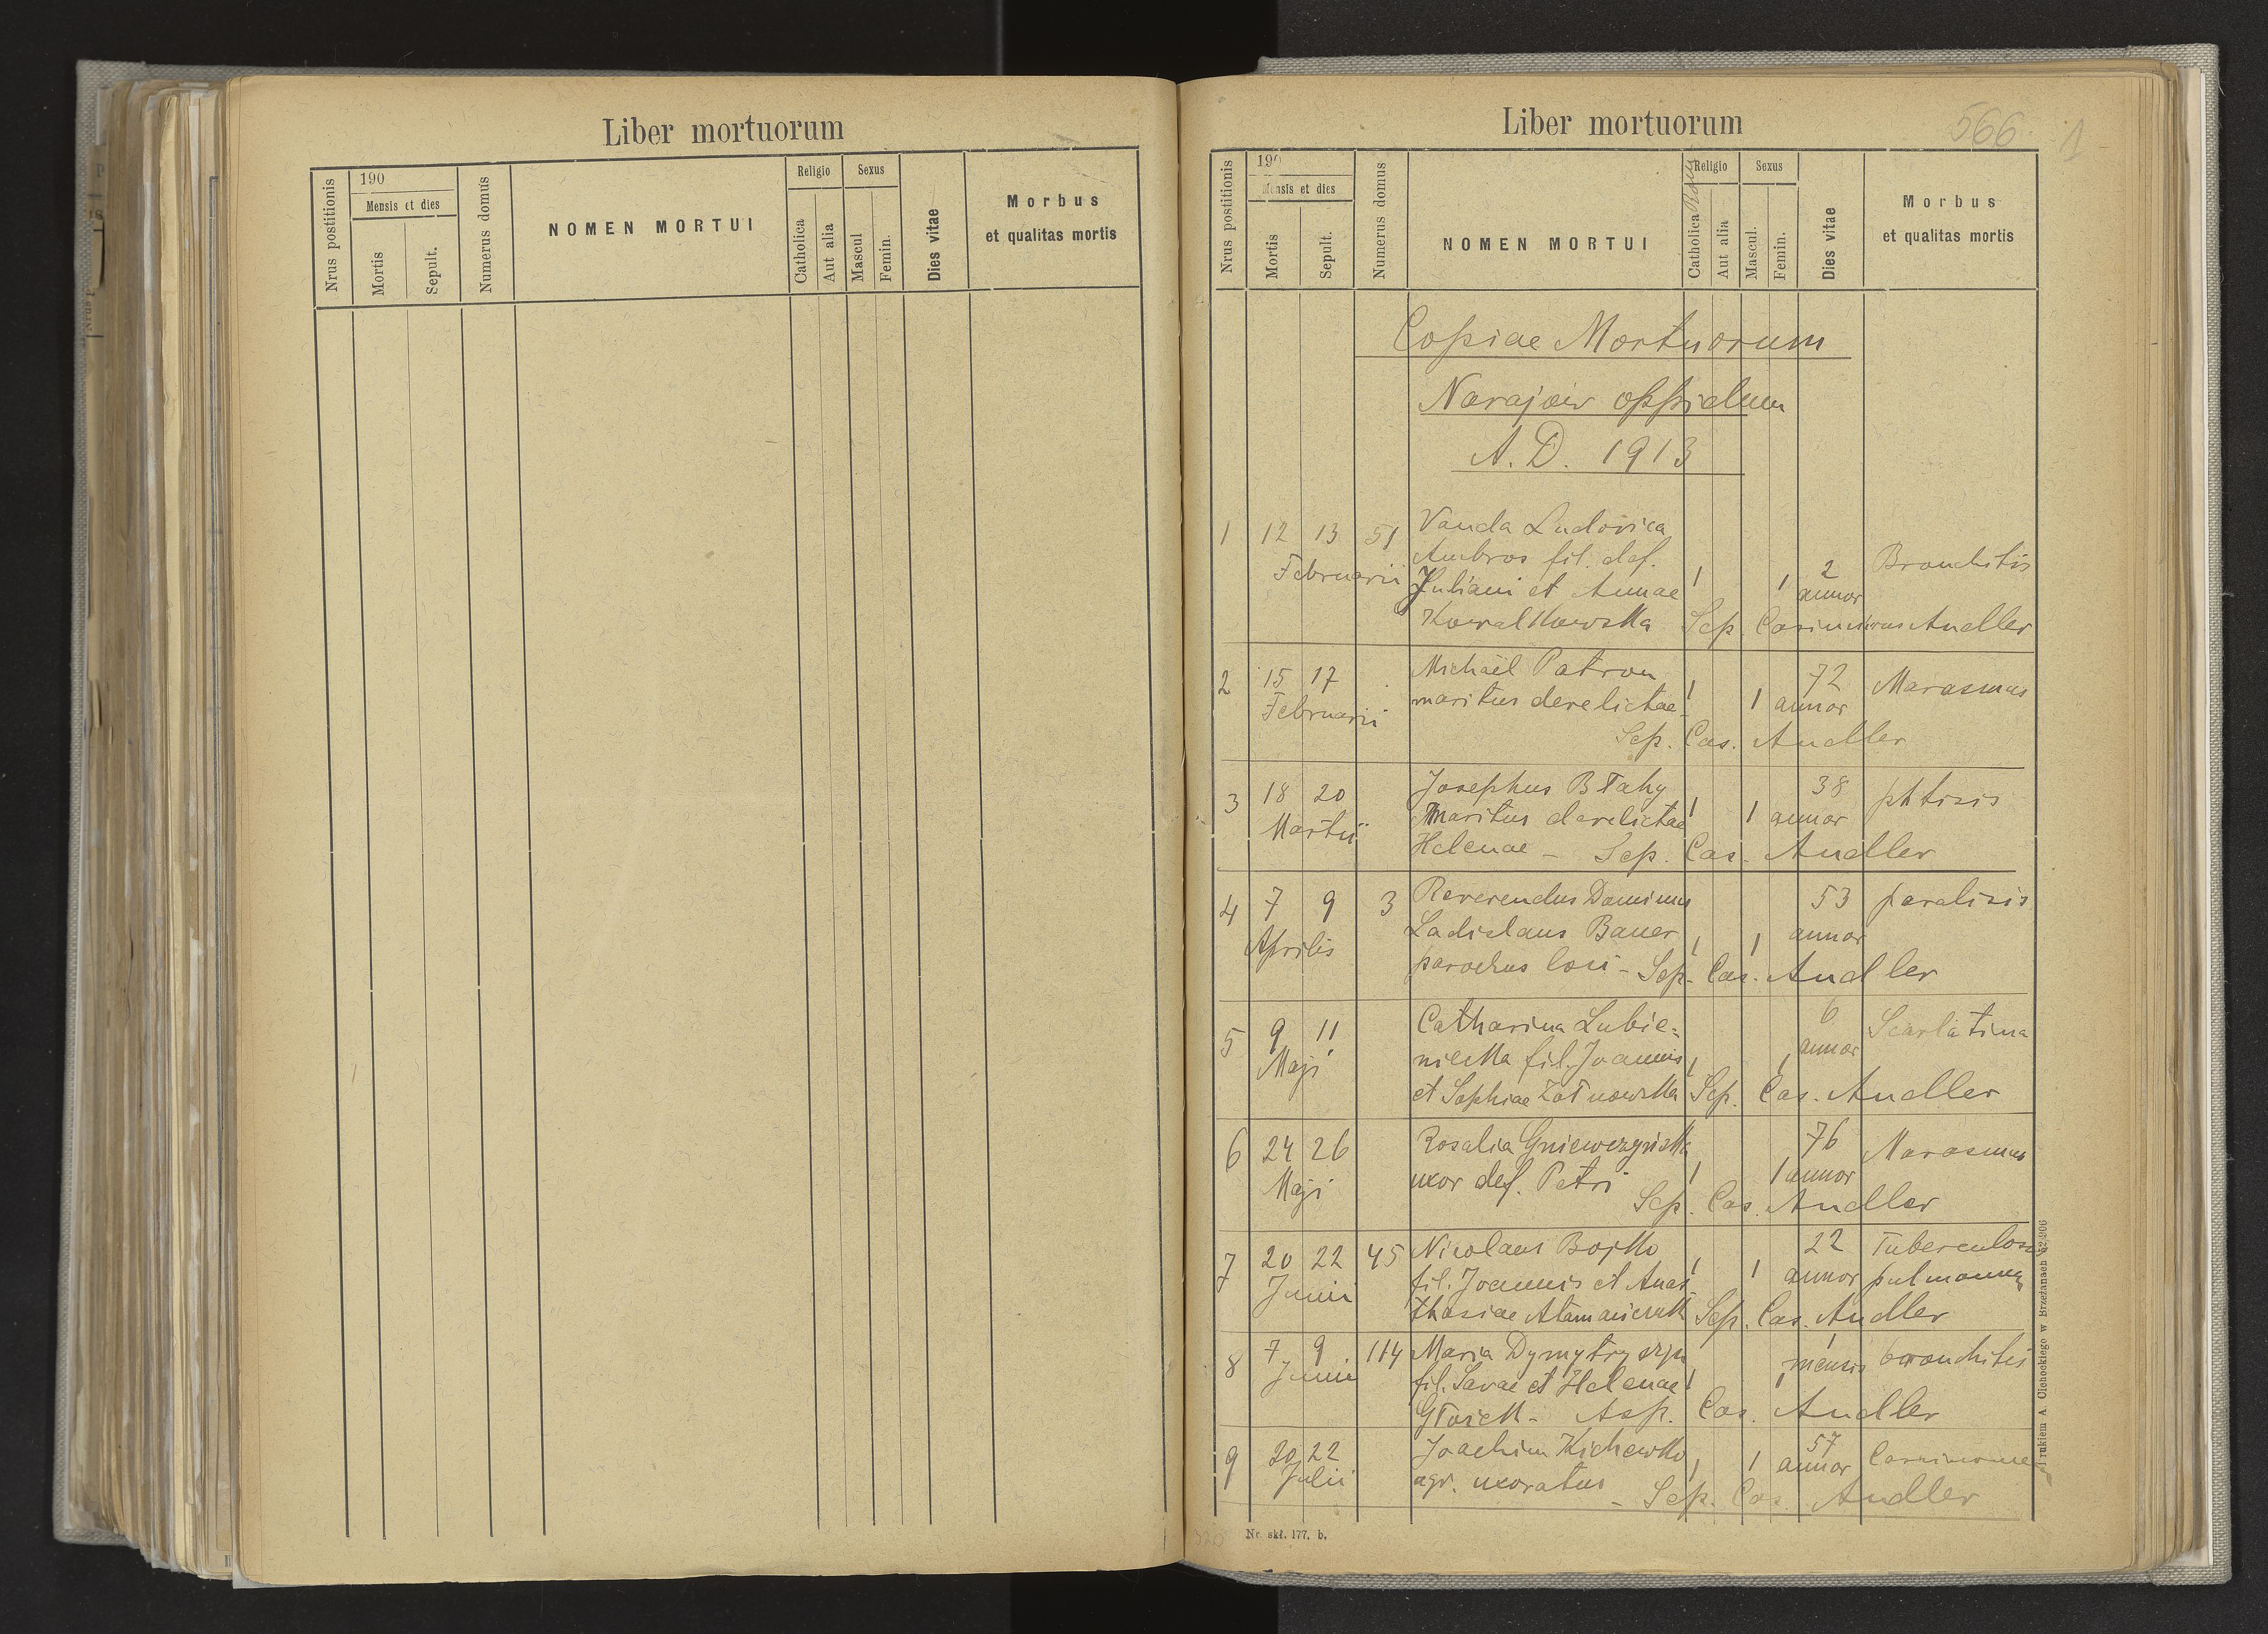 Liber mortuorum
Nrus postitionis
190
Mensis et dies
Mortis
Sepult.
Numerus domus
NOMEN MORTUI
Religio
Catholica
Aut alia
Sexus
Mascul
Femin.
Dies vitae
Morbus
et qualitas mortis
Liber mortuorum
566
1
Nrus postitionis
190
Mensis et dies
Mortis
Sepult.
Numerus domus
NOMEN MORTUI
Religio
Catholica
Aut alia
Sexus
Mascul.
Femin.
Dies vitae
Morbus
et qualitas mortis
Copiae Mortuorum
Narajow oppidum
A. D. 1913
1 12 13 51 Vanda Ludovica
Ambros fil. def.
Februarii Juliani et Annae 1 1 2 annor Bronchitis
Kowalkowska Sep. Casimirus Andler
2 15 17 Michaël Patron 72 Marasmus
Februarii maritus derelictae 1 1 annor
Sep. Cas. Andler
3 18 20 Josephus Błahy 38 phtisis
Martii maritus derelictae 1 1 annor
Helenae - Sep. Cas. Andler
4 7 9 3 Reverendus Dominus 53 paralisis
Aprilis Ladislaus Bauer 1 1 annor
parochus loci - Sep. Cas. Andler
5 9 11 Catharina Lubie= 6 Scarlatina
Maji niecka fil. Joannis 1 1 annor
et Sophiae Żołnowska Sep. Cas. Andler
6 24 26 Rosalia Gniewczyńska 76 Marasmus
Maji uxor def. Petri 1 1 annor
Sep. Cas. Andler
7 20 22 45 Nicolaus Bojko 22 Tuberculos
Junii fil. Joannis et Anas= 1 1 annor pulmonum
thasiae Atamańczuk Sep. Cas. Andler
8 7 9 114 Maria Dymytryszyn 1 bronchitis
Junii fil. Savae et Helenae 1 1 mensis
Asp. Cas. Andler
9 20 22 Joachim Kichewko 57
Julii agr. uxoratus 1 1 annor Carcinoma
- Sep. Cas. Andler
Nr. skł. 177. b.
Drukiem A. Cichockiego w Brzeżanach